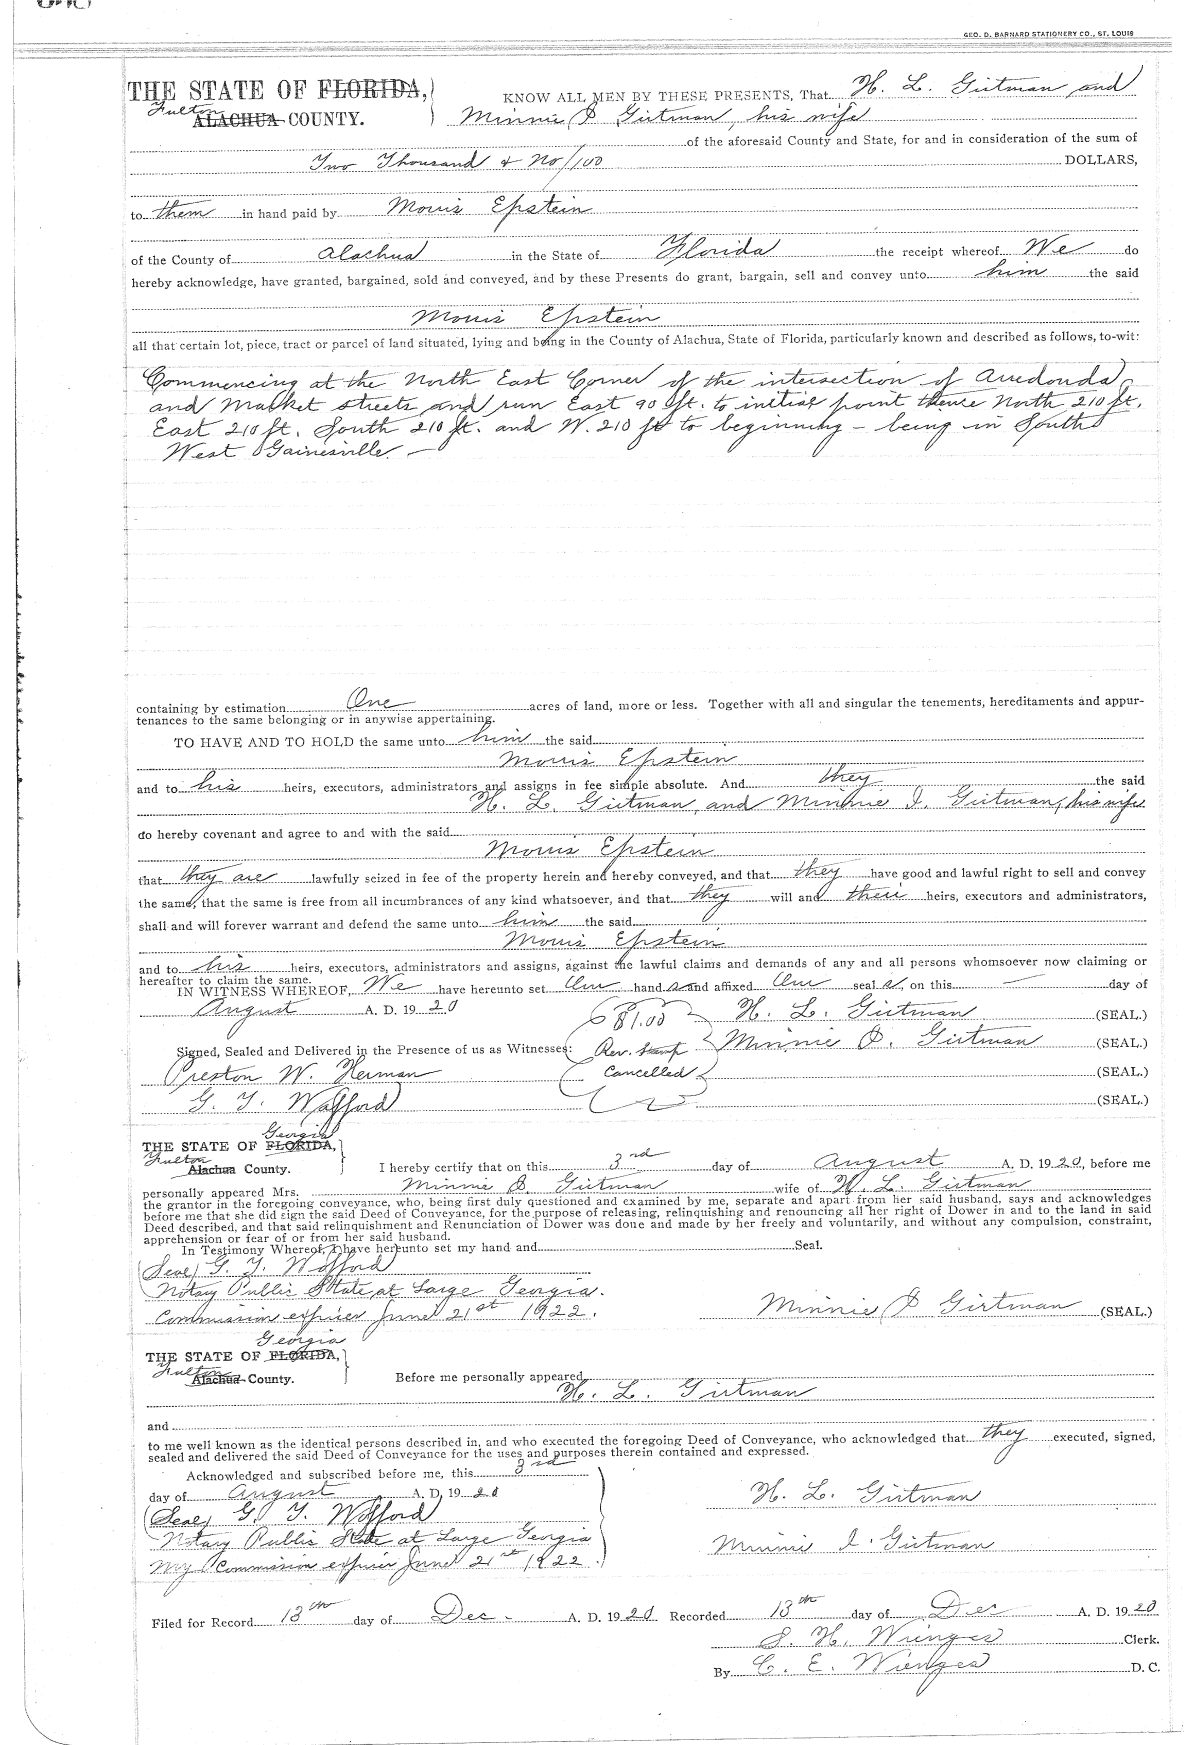 GEO. D. BARNARD STATIONERY CO., ST. LOUIS
THE STATE OF FLORIDA,
Fulton
ALACHUA COUNTY.
KNOW ALL MEN BY THESE PRESENTS, That H. L. Girtman and
Minnie I Girtman, his wife
of the aforesaid County and State, for and in consideration of the sum of
Two Thousand & No/100 DOLLARS,
to them in hand paid by Morris Epstein
of the County of Alachua in the State of Florida the receipt whereof We do
hereby acknowledge, have granted, bargained, sold and conveyed, and by these Presents do grant, bargain, sell and convey unto him the said
Morris Epstein
all that certain lot, piece, tract or parcel of land situated, lying and being in the County of Alachua, State of Florida, particularly known and described as follows, to-wit:
Commencing at the North East Corner of the intersection of Arredonda
and Market streets and run East 90 ft. to initial point thence North 210 ft.
East 210 ft. South 210 ft. and W. 210 ft to beginning - being in South
West Gainesville. -
containing by estimation One acres of land, more or less. Together with all and singular the tenements, hereditaments and appur-
tenances to the same belonging or in anywise appertaining.
TO HAVE AND TO HOLD the same unto him the said
Morris Epstein
and to his heirs, executors, administrators and assigns in fee simple absolute. And they the said
H. L. Girtman and Minnie I. Girtman, his wife
do hereby covenant and agree to and with the said
Morris Epstein
that they are lawfully seized in fee of the property herein and hereby conveyed, and that they have good and lawful right to sell and convey
the same, that the same is free from all incumbrances of any kind whatsoever, and that they will and their heirs, executors and administrators,
shall and will forever warrant and defend the same unto him the said
Morris Epstein
and to his heirs, executors, administrators and assigns, against the lawful claims and demands of any and all persons whomsoever now claiming or
hereafter to claim the same.
IN WITNESS WHEREOF, We have hereunto set Our hand s and affixed Our seal s, on this — day of
August A. D. 1920
H. L. Girtman (SEAL.)
Signed, Sealed and Delivered in the Presence of us as Witnesses:
Minnie I. Girtman (SEAL.)
Preston W. Herman (SEAL.)
G. Y. Wofford (SEAL.)
Rev. Stamp
Cancelled
Georgia
THE STATE OF FLORIDA,
Fulton
Alachua County.
I hereby certify that on this 3rd day of August A. D. 1920, before me
personally appeared Mrs. Minnie I. Girtman wife of H. L. Girtman
the grantor in the foregoing conveyance, who, being first duly questioned and examined by me, separate and apart from her said husband, says and acknowledges
before me that she did sign the said Deed of Conveyance, for the purpose of releasing, relinquishing and renouncing all her right of Dower in and to the land in said
Deed described, and that said relinquishment and Renunciation of Dower was done and made by her freely and voluntarily, and without any compulsion, constraint,
apprehension or fear of or from her said husband.
In Testimony Whereof, I have hereunto set my hand and Seal.
(Seal) G. Y. Wofford
Notary Public State at Large Georgia.
Commission expires June 21st 1922.
Minnie I Girtman (SEAL.)
Georgia
THE STATE OF FLORIDA,
Fulton
Alachua County.
Before me personally appeared
H. L. Girtman
and
to me well known as the identical persons described in, and who executed the foregoing Deed of Conveyance, who acknowledged that they executed, signed,
sealed and delivered the said Deed of Conveyance for the uses and purposes therein contained and expressed.
Acknowledged and subscribed before me, this 3rd
day of August A. D. 1920
(Seal) G. Y. Wofford
Notary Public State at Large Georgia
My Commission expires June 21st 1922.
H. L. Girtman
Minnie I. Girtman
Filed for Record 13th day of Dec. A. D. 1920 Recorded 13th day of Dec A. D. 1920
S. H. Wienges Clerk.
By C. E. Wienges D. C.